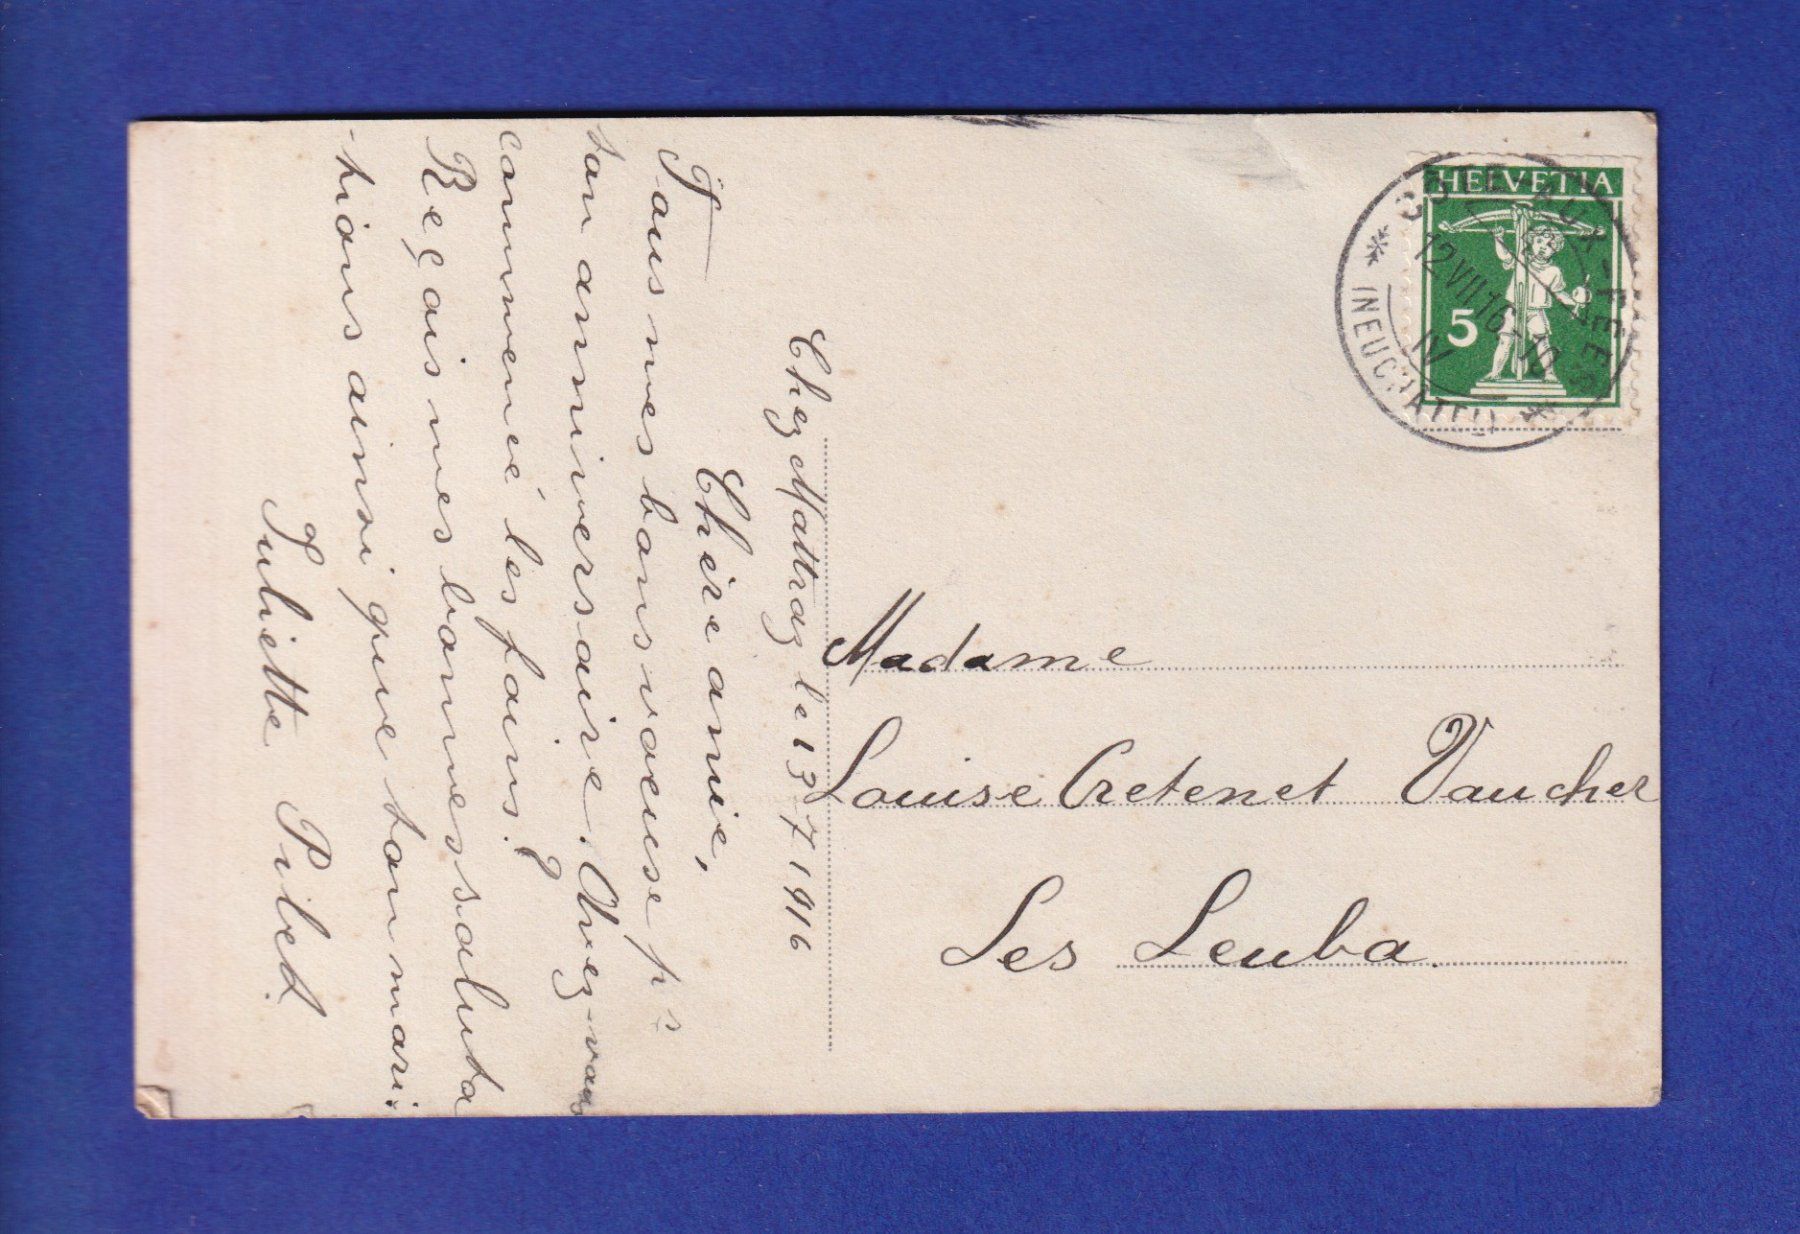 Chez Mattraz le 13 7 1916
Chère amie,
Tous mes bons voeuse p^s
ton anniversaire. Avez-vous
commencé les foins?
Reçois mes bonnes saluta
-tions ainsi que ton mari.
Juliette Pilet.
HELVETIA
5
12 VII 16 - 10
IV
(NEUCHATEL)
Madame
Louise Cretenet Vaucher
Les Leuba.